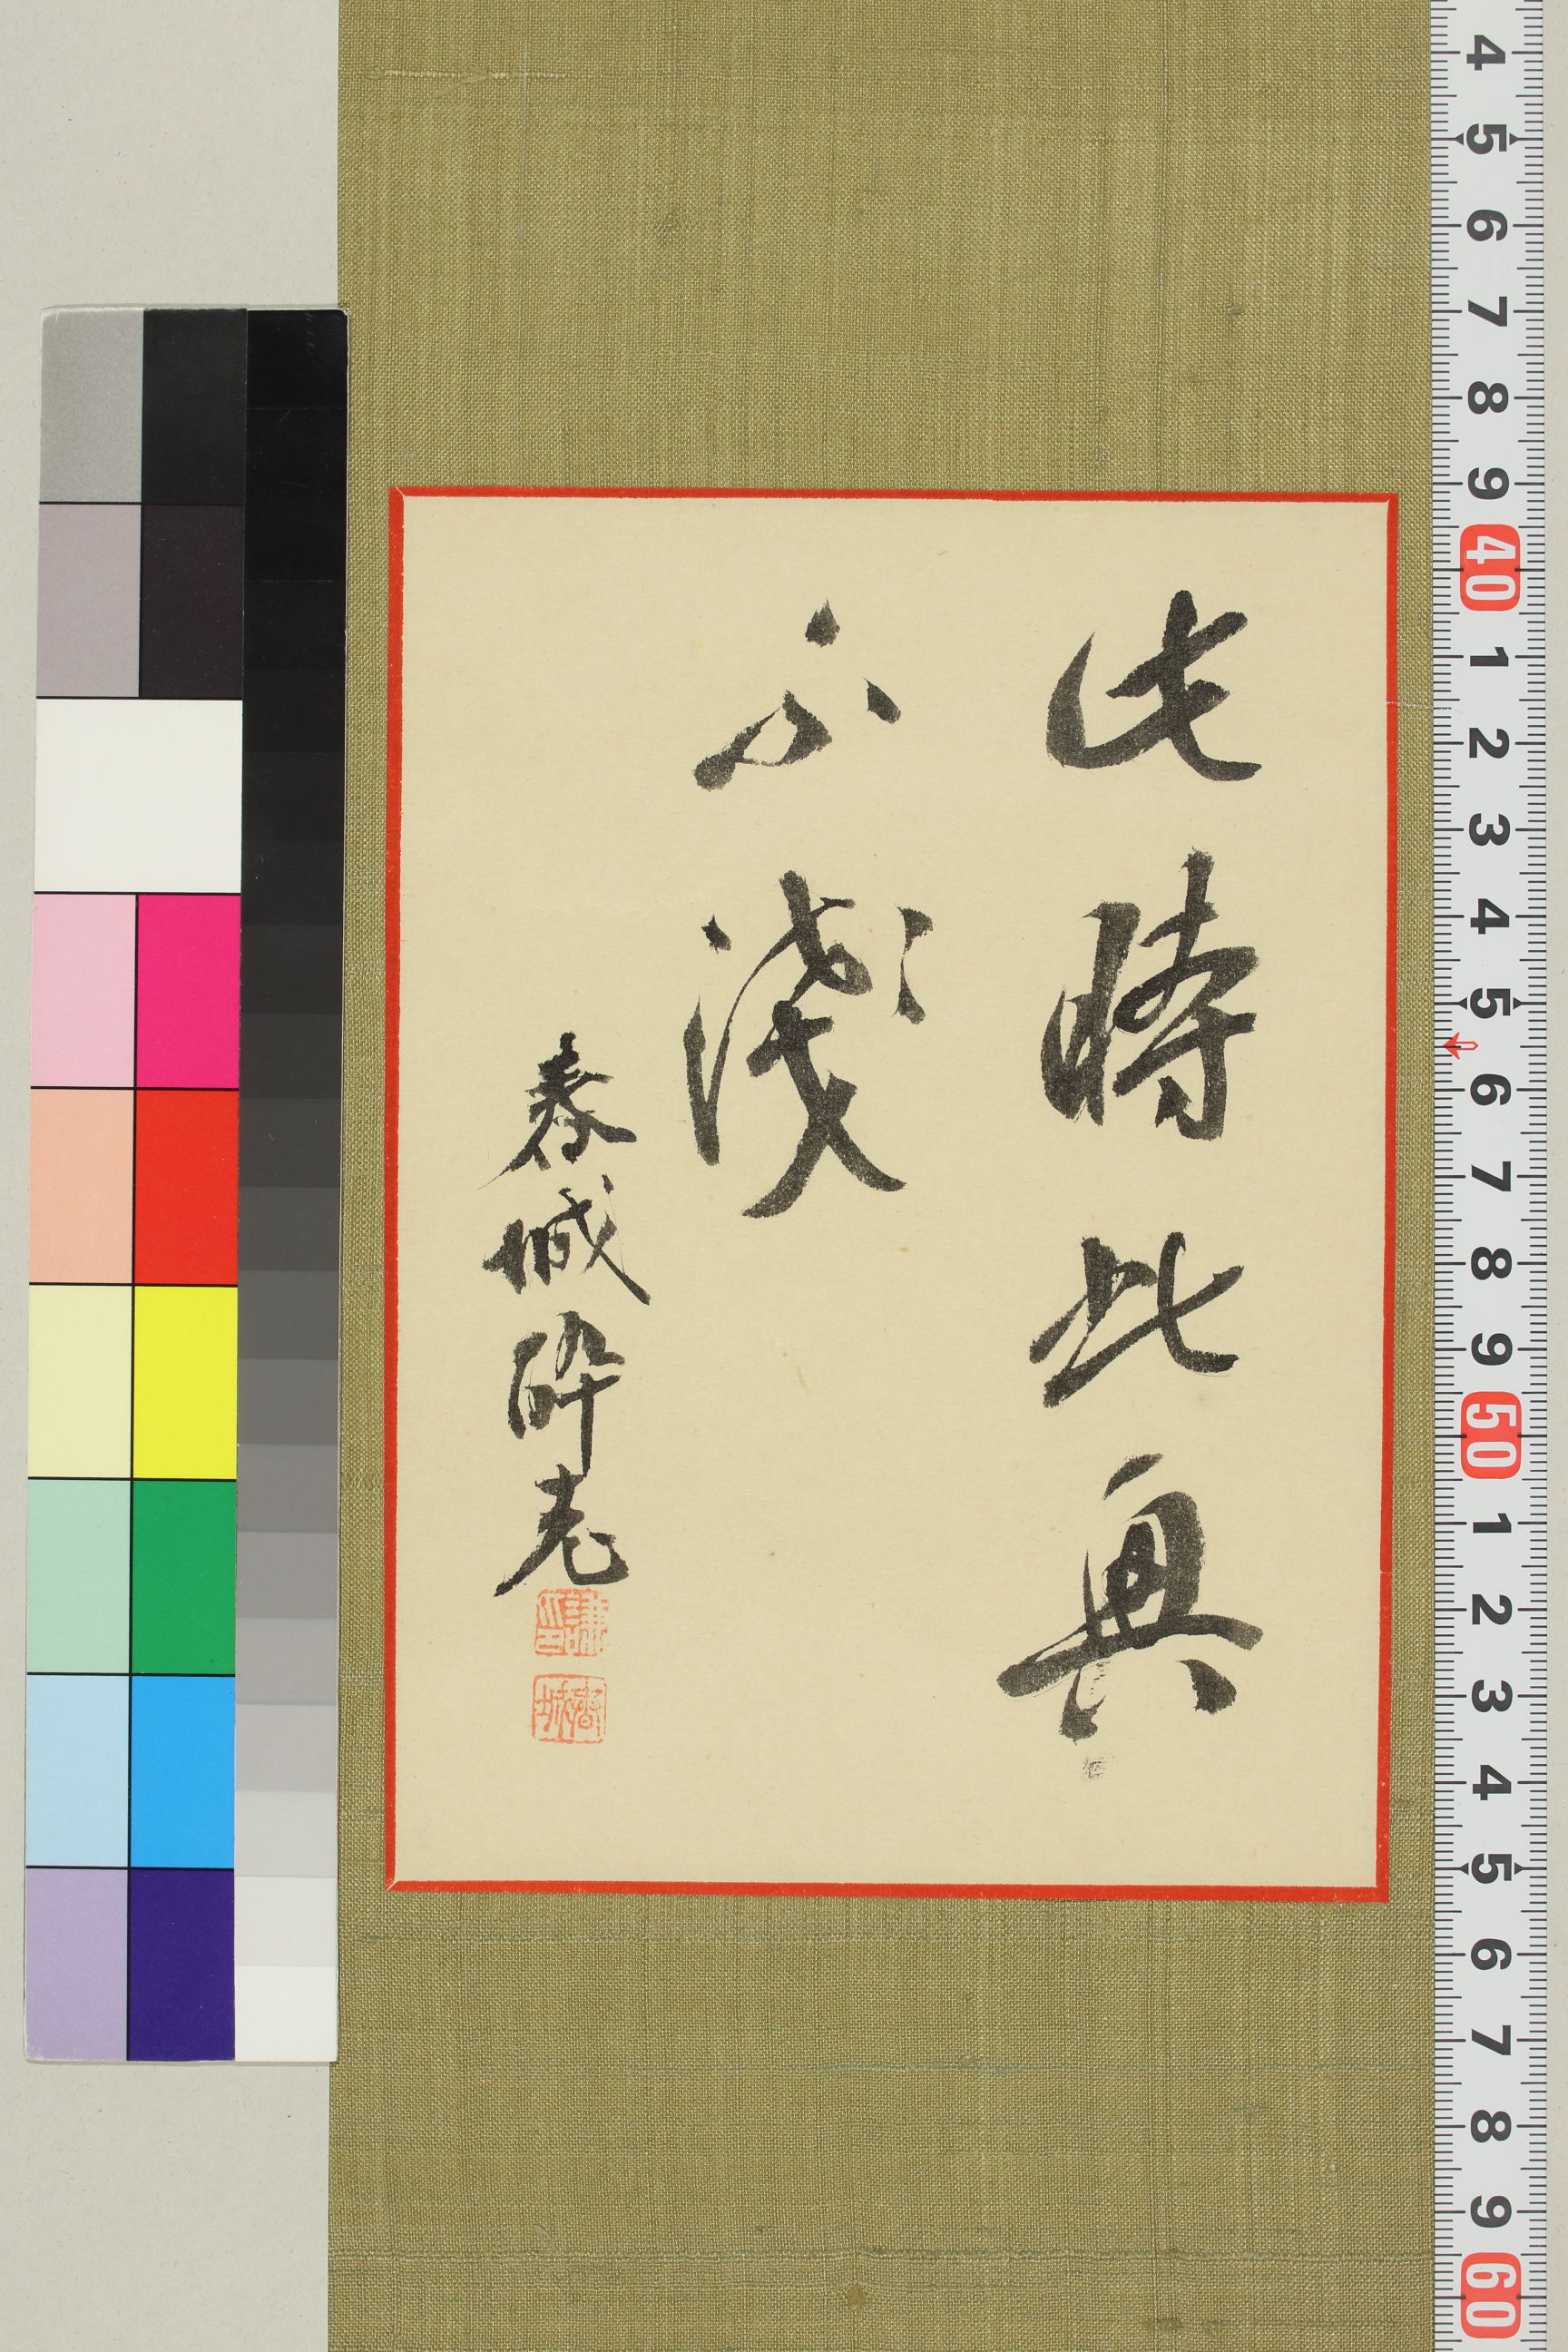 此時此興
不淺
春城酔老
春城
4 5 6 7 8 9 40 1 2 3 4 5 6 7 8 9 50 1 2 3 4 5 6 7 8 9 60